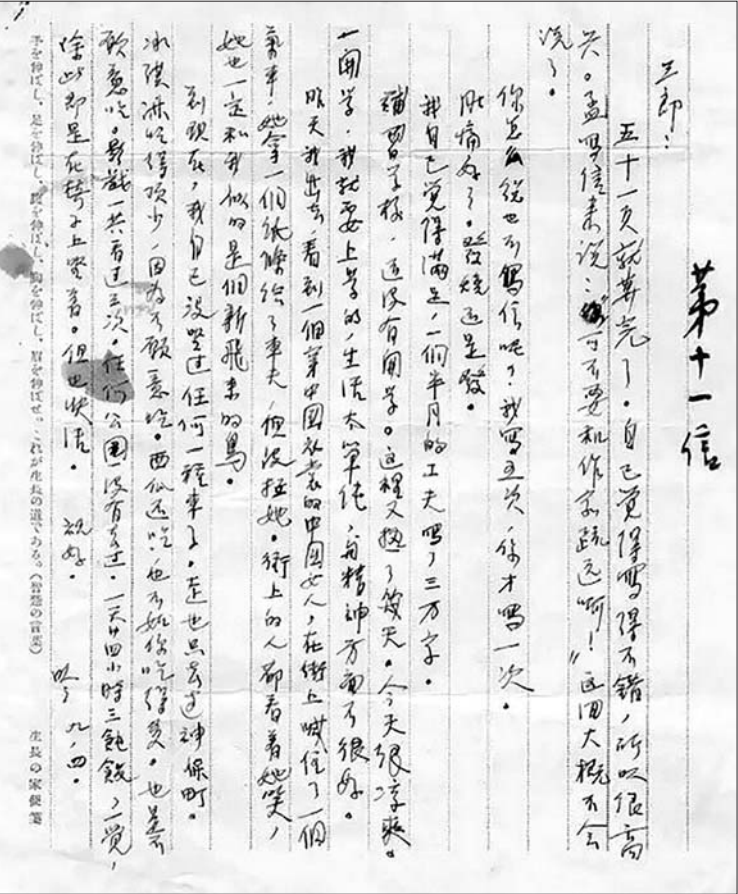 第十一信
三郎：
五十一页就算完了。自己觉得写得不错，所以很高
兴。孟写信来说：“可不要和作家疏远啊！”这回大概不会
说了。
你怎么总也不写信呢？我写五次，你才写一次。
肚痛好了。發燒还是發。
我自己觉得满足，一個半月的工夫写了三万字。
補習学校，还没有開学。这裡又热了幾天。今天很凉爽。
一開学，我就要上学的，生活太單純，与精神方面不很好。
昨天我出去，看到一個穿中国衣裳的中国女人，在街上喊住了一個
氣車，她拿一個紙條給了車夫，但没拉她。街上的人都看着她笑，
她也一定和我似的是個新飛来的鳥。
到現在，我自己没坐过任何一種車子，走也只走过神保町。
冰淇淋吃得頂少，因为不願意吃。西瓜还吃，也不如你吃得多。也是不
願意吃。影戲一共看过三次。任何公園没有去过。一天廿四小時三飽餓，一覺，
除此即是在椅子上坐着。但也快活。 祝好。
吟 九，四。
手を伸ばし、足を伸ばし、腰を伸ばし、胸を伸ばし、眉を伸ばせ。これが生長の道である。（智慧の言葉） 生長の家便箋